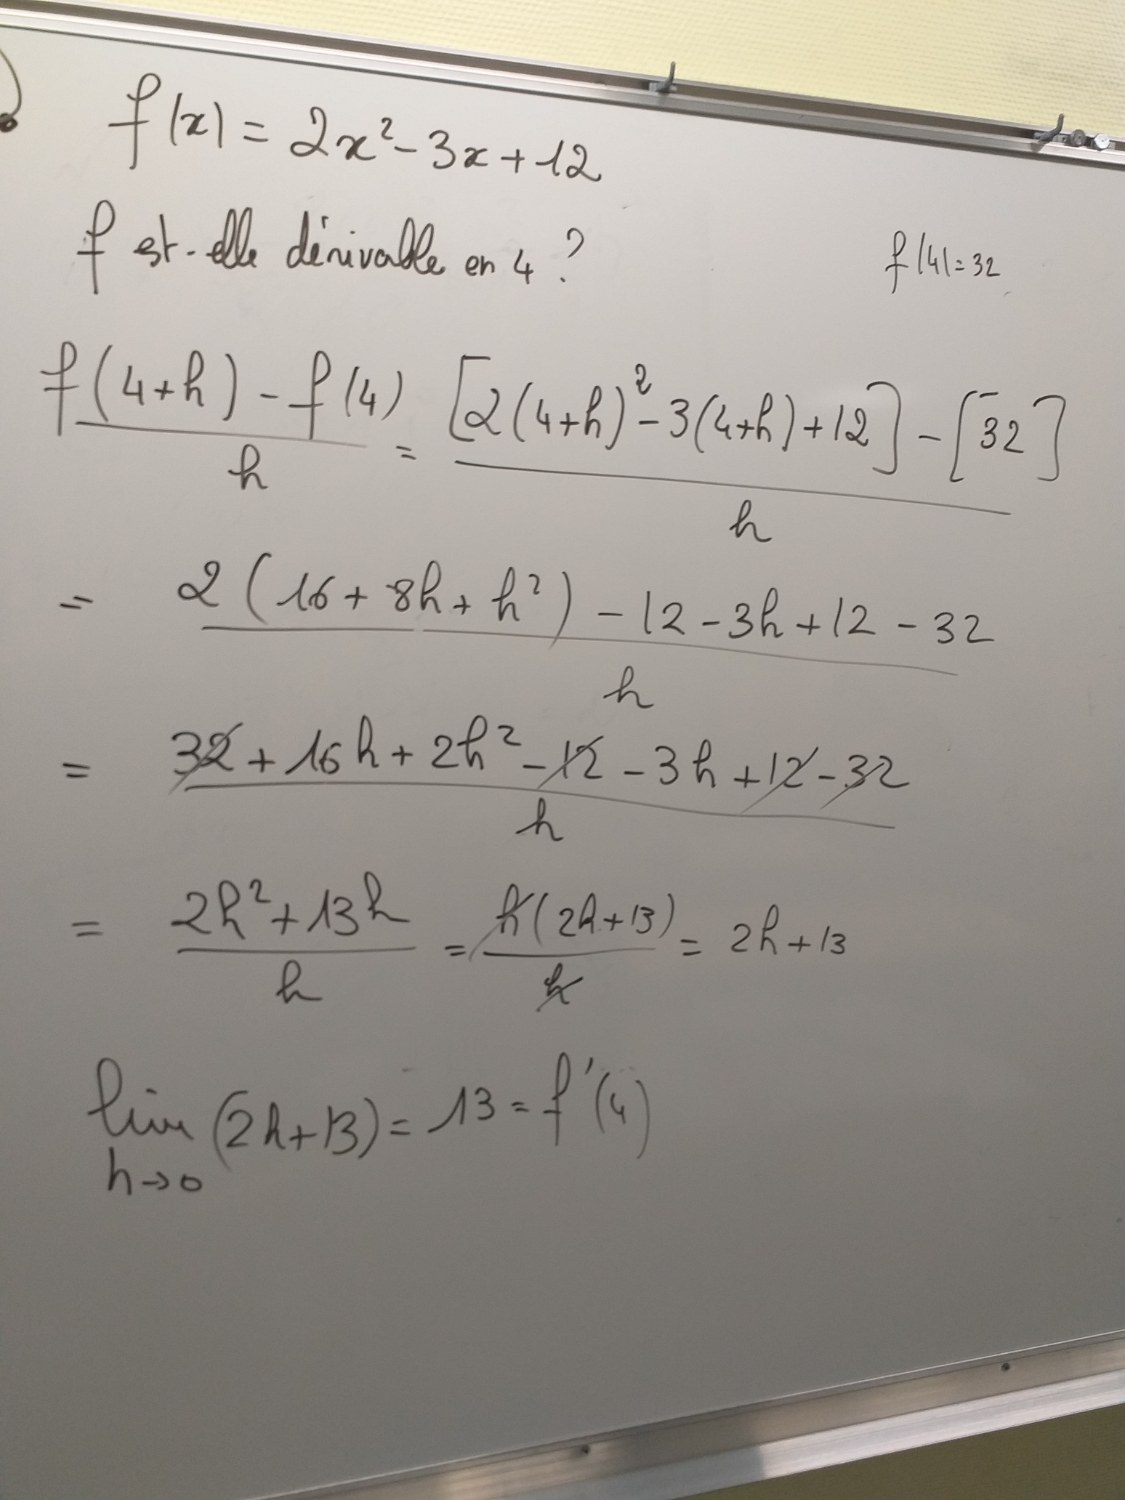 f(x) = 2x² - 3x + 12
f est-elle dérivable en 4 ?
f(4) = 32
f(4+h) - f(4) / h = [2(4+h)² - 3(4+h) + 12] - [32] / h
= 2(16 + 8h + h²) - 12 - 3h + 12 - 32 / h
= 32 + 16h + 2h² - 12 - 3h + 12 - 32 / h
= 2h² + 13h / h = h(2h+13) / h = 2h + 13
lim (2h+13) = 13 = f'(4)
h→0